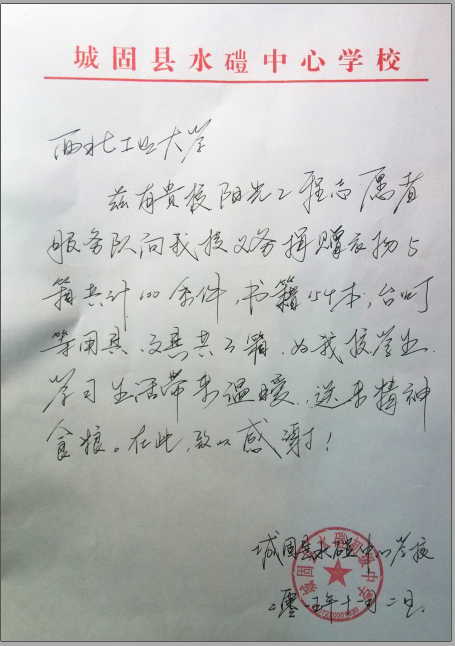 城固县水磑中心学校
西北工业大学
兹有贵校阳光工程志愿者
服务队向我校义务捐赠衣物5
箱共计100条件,书籍54本,台灯
等用具、文具共3箱,为我校学生
学习生活带来温暖,送来精神
食粮。在此,致以感谢!
城固县水磑中心学校
二零一五年十一月二日